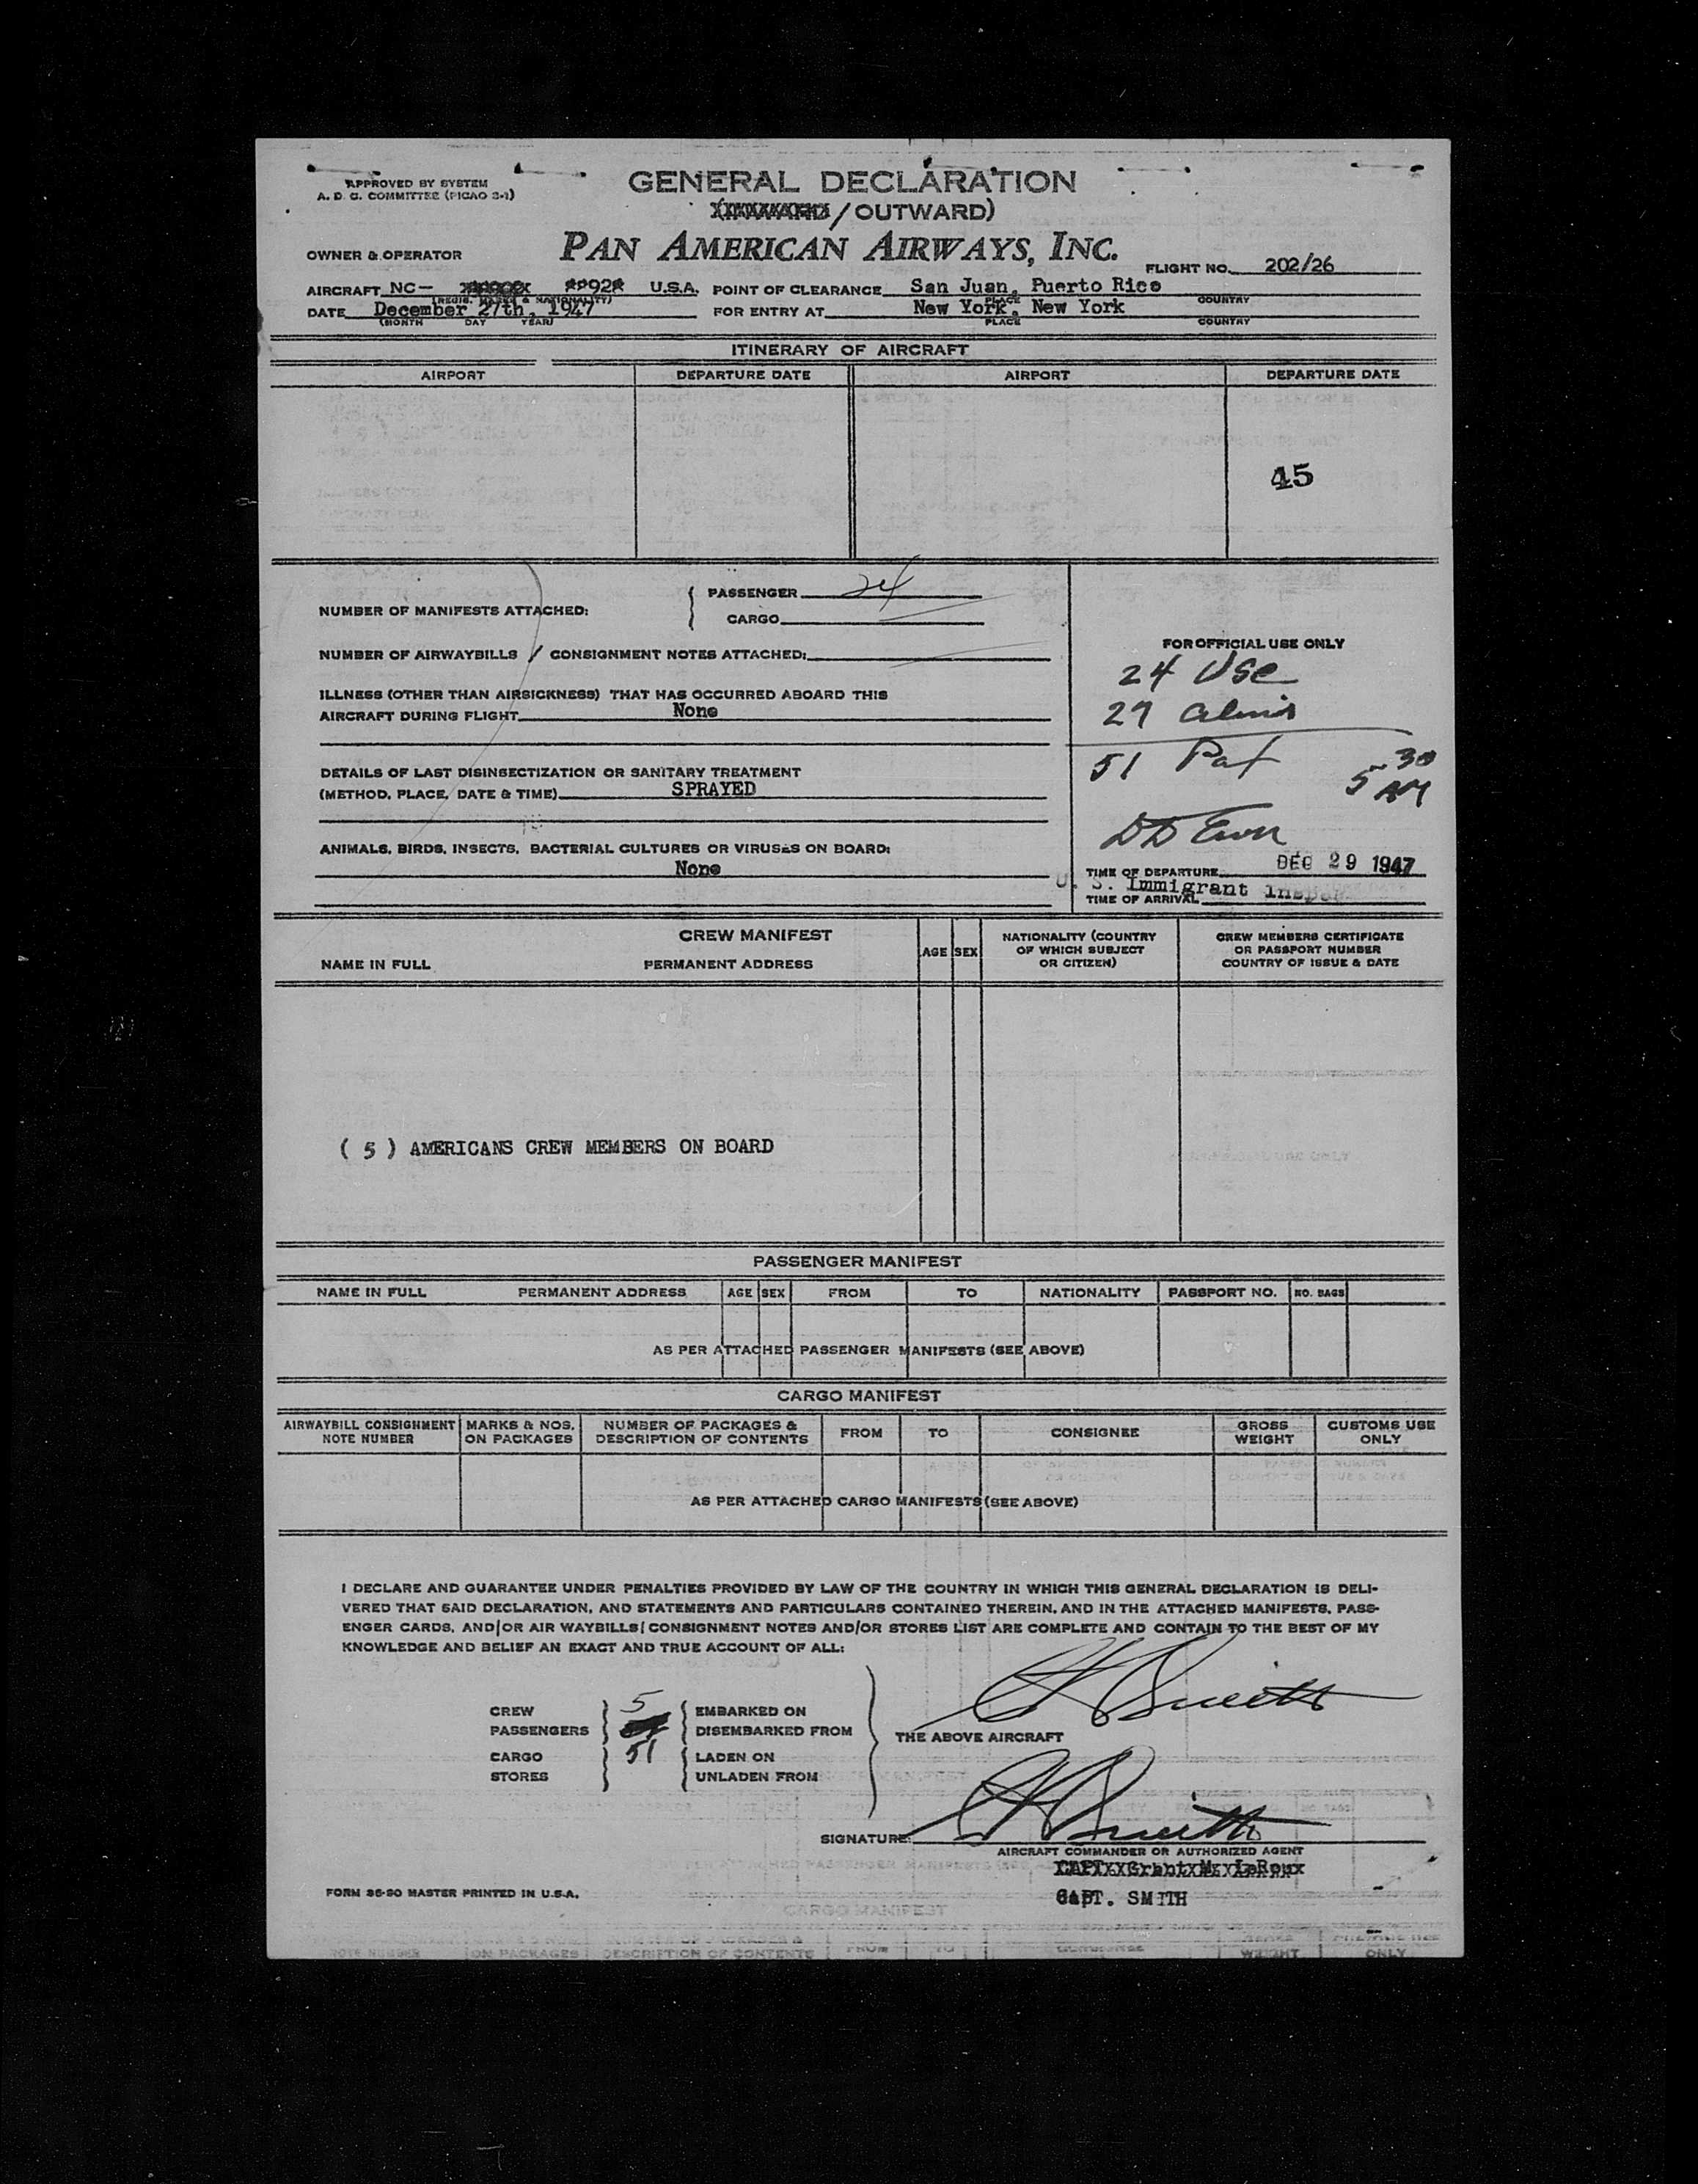 APPROVED BY SYSTEM
A. D. C. COMMITTEE (PICAO 2-1)
GENERAL DECLARATION
/ OUTWARD)
OWNER & OPERATOR
PAN AMERICAN AIRWAYS, INC.
FLIGHT NO. 202/26
AIRCRAFT NC- U.S.A. POINT OF CLEARANCE San Juan, Puerto Rico
(REGIS. MARKS & NATIONALITY) PLACE COUNTRY
DATE December 27th, 1947 FOR ENTRY AT New York, New York
(MONTH DAY YEAR) PLACE COUNTRY
ITINERARY OF AIRCRAFT
AIRPORT DEPARTURE DATE AIRPORT DEPARTURE DATE
45
PASSENGER 24
NUMBER OF MANIFESTS ATTACHED:
CARGO
FOR OFFICIAL USE ONLY
NUMBER OF AIRWAYBILLS / CONSIGNMENT NOTES ATTACHED:
24 USC
ILLNESS (OTHER THAN AIRSICKNESS) THAT HAS OCCURRED ABOARD THIS
AIRCRAFT DURING FLIGHT None
27 aliens
51 Pax
5 30 AM
DETAILS OF LAST DISINSECTIZATION OR SANITARY TREATMENT
(METHOD, PLACE, DATE & TIME) SPRAYED
ANIMALS, BIRDS, INSECTS, BACTERIAL CULTURES OR VIRUSES ON BOARD:
None
TIME OF DEPARTURE DEC 29 1947
U. S. Immigrant Inspec
TIME OF ARRIVAL
CREW MANIFEST
NAME IN FULL PERMANENT ADDRESS AGE SEX NATIONALITY (COUNTRY OF WHICH SUBJECT OR CITIZEN) CREW MEMBERS CERTIFICATE OR PASSPORT NUMBER COUNTRY OF ISSUE & DATE
( 5 ) AMERICANS CREW MEMBERS ON BOARD
PASSENGER MANIFEST
NAME IN FULL PERMANENT ADDRESS AGE SEX FROM TO NATIONALITY PASSPORT NO. NO. BAGS
AS PER ATTACHED PASSENGER MANIFESTS (SEE ABOVE)
CARGO MANIFEST
AIRWAYBILL CONSIGNMENT NOTE NUMBER MARKS & NOS. ON PACKAGES NUMBER OF PACKAGES & DESCRIPTION OF CONTENTS FROM TO CONSIGNEE GROSS WEIGHT CUSTOMS USE ONLY
AS PER ATTACHED CARGO MANIFESTS (SEE ABOVE)
I DECLARE AND GUARANTEE UNDER PENALTIES PROVIDED BY LAW OF THE COUNTRY IN WHICH THIS GENERAL DECLARATION IS DELI-
VERED THAT SAID DECLARATION, AND STATEMENTS AND PARTICULARS CONTAINED THEREIN, AND IN THE ATTACHED MANIFESTS, PASS-
ENGER CARDS, AND/OR AIR WAYBILLS/ CONSIGNMENT NOTES AND/OR STORES LIST ARE COMPLETE AND CONTAIN TO THE BEST OF MY
KNOWLEDGE AND BELIEF AN EXACT AND TRUE ACCOUNT OF ALL:
CREW 5 EMBARKED ON
PASSENGERS DISEMBARKED FROM
THE ABOVE AIRCRAFT
CARGO 51 LADEN ON
STORES UNLADEN FROM
SIGNATURE:
AIRCRAFT COMMANDER OR AUTHORIZED AGENT
CAPT. SMITH
FORM 36-90 MASTER PRINTED IN U.S.A.